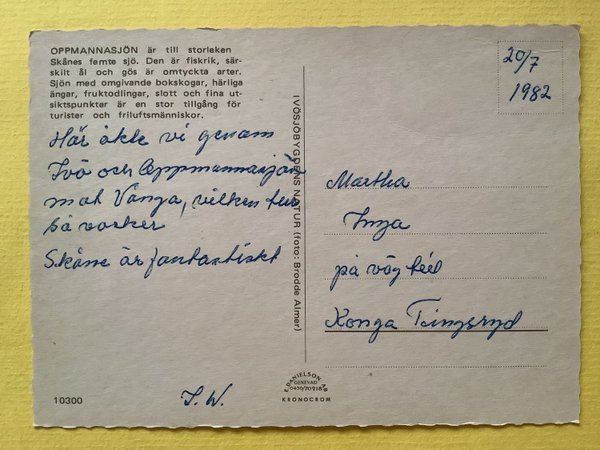 OPPMANNASJÖN är till storleken
Skånes femte sjö. Den är fiskrik, sär-
skilt ål och gös är omtyckta arter.
Sjön med omgivande bokskogar, härliga
ängar, fruktodlingar, slott och fina ut-
siktspunkter är en stor tillgång för
turister och friluftsmänniskor.
Här åkte vi genom
Ivö och Oppmannasjön
mot Vånga, vilken
så vacker
Skåne är fantastiskt
I. W.
10300
IVÖSJÖBYGDENS NATUR (foto: Brodde Almer)
E. DANIELSON AB
GENEVAD
0430/70218
KRONOCROM
20/7
1982
Martha
Inga
på väg till
Konga Tingsryd